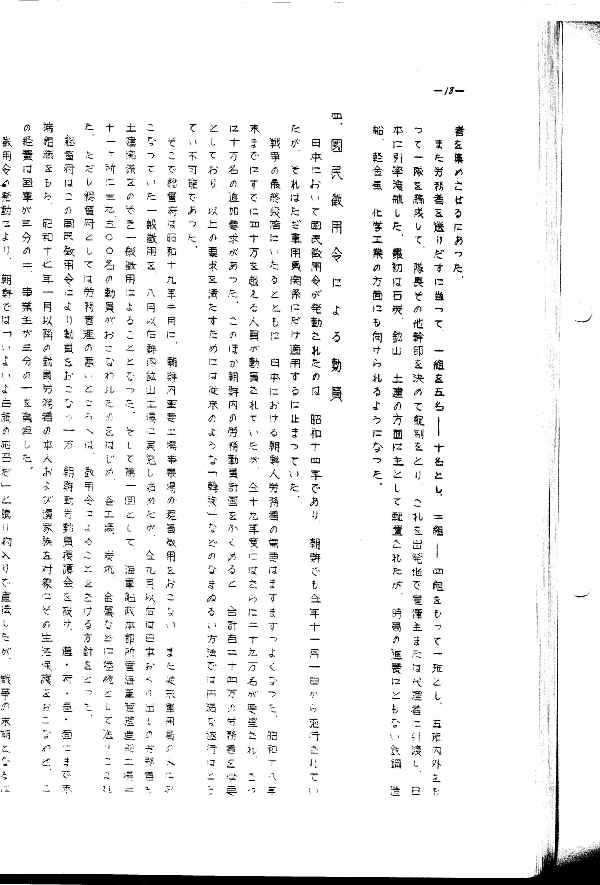 —18—
者を集めさせるにあった。
また労務者を送りだすに当って 一組を五名——十名とし、二組——四組をもって一班とし、五班内外をも
って一隊を編成して、隊長その他幹部を決めて配列をとり これを出発地で雇傭主または代理者に引渡し、日
本に引率渡航した。最初は石炭 鉱山 土建の方面に主として配置されたが、時局の進展にともない鉄鋼 造
船、軽金属 化学工業の方面にも向けられるようになった。
四、國民徴用令による動員
日本において国民徴用令が発動されたのは 昭和十四年であり 朝鮮でも仝年十一月一日から施行されてい
たが それはただ軍用員関係にだけ適用するに止まっていた。
戦争の最終段階にいたるとともに 日本における朝鮮人労務者の需要はますますつよくなった。昭和十八年
末までにすでに四十万を越える人員が動員されていたが 仝十九年度にはさらに二十九万名が要望され、さら
に十万名の追加要求があった。このほか朝鮮内の労務動員計画をかくあると 合計百二十四万の労務者を必要
としており 以上の要求を満たすためには従来のような「斡旋」などのなまぬるい方法では円滑な遂行はとう
てい不可能であった。
そこで総督府は昭和十九年二月に 朝鮮内重要工場事業場の現員徴用をおこない また
こなっていた一般徴用を 八月以后鮮内鉱山工場に実施し始めたが、仝九月以后は日本
土建関係をのぞき一般徴用によることとなった。そして第一回として 海軍
十一ヶ所に 名の動員がおこなわれたのをはじめ 各工場、炭坑 金属などに
た。ただし総督府としては労務管理の悪いところへは、徴用令によることをさける方針をとった。
総督府はこの国民徴用令により動員をおこなう一方 朝鮮勤労動員援護会を設け、道・府・郡・面にまで末
端組織をもち 昭和十七年一月以降の動員労務者の本人および遺家族を対象にその生活援護をおこなわせ、こ
の経費は国庫が三分の二 事業主が三分の一を負担した。
徴用令の発動により、朝鮮では「いよいよ白紙の応召だ」と鳴り物入りで宣伝したが、戦争の末期となるに